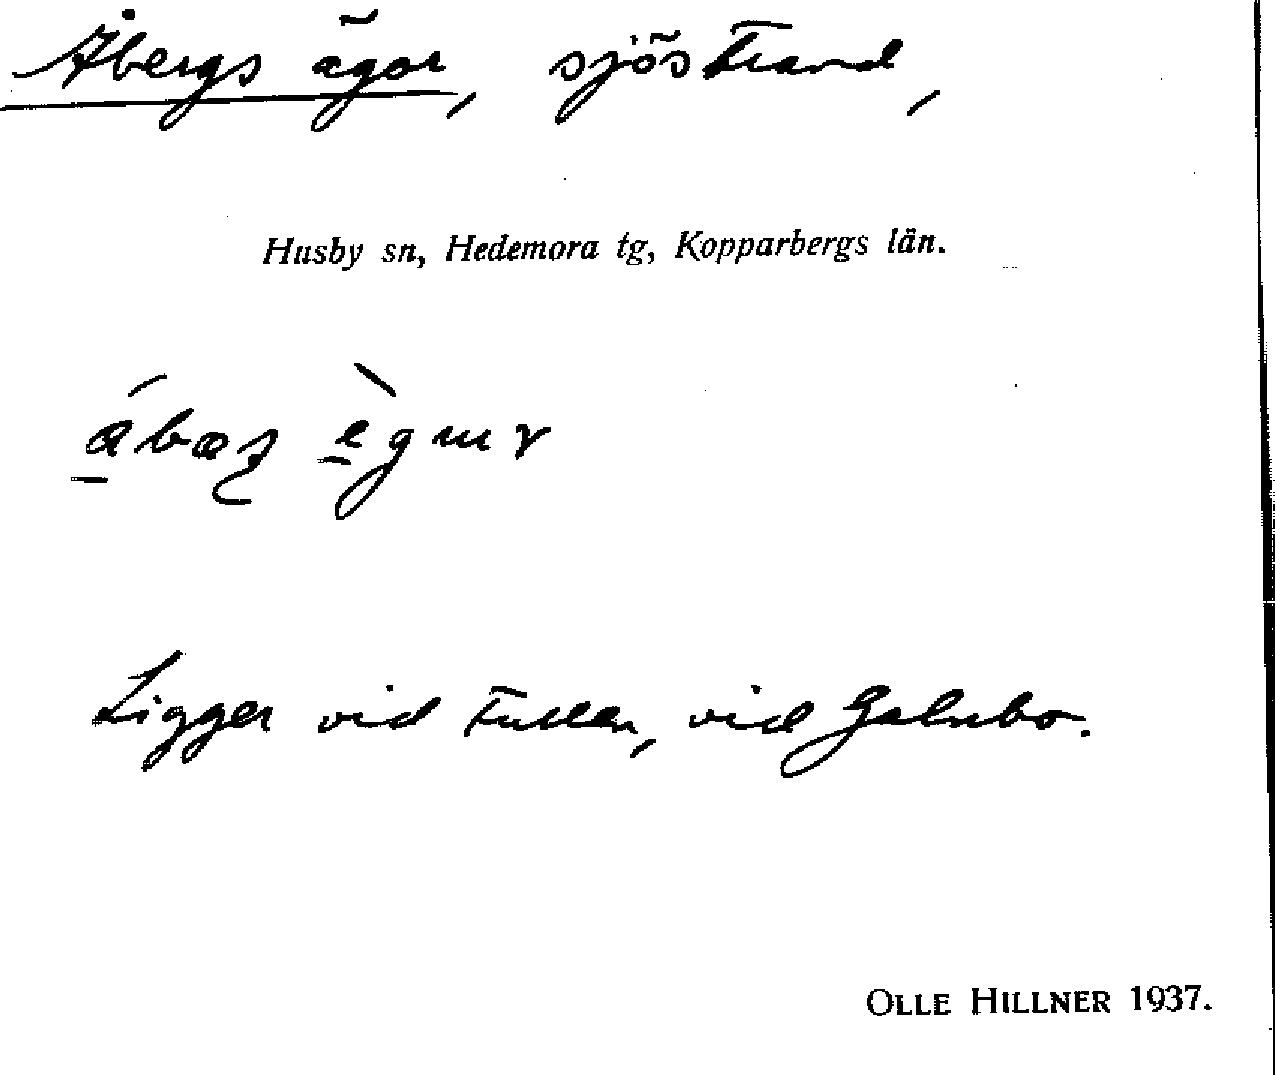 Åbergs ägor, sjöstrand,
Husby sn, Hedemora tg, Kopparbergs län.
Ligger vid Tullen, vid Galnbo.
OLLE HILLNER 1937.